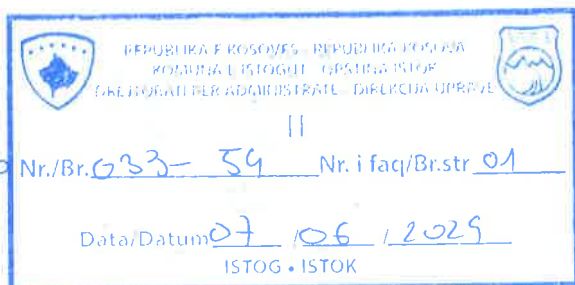 REPUBLIKA E KOSOVËS - REPUBLIKA KOSOVA
KOMUNA E ISTOGUT - OPŠTINA ISTOK
DREJTORATI PER ADMINISTRATË - DIREKCIJA UPRAVE
II
Nr./Br. 033- 54 Nr. i faq/Br.str 01
Data/Datum 07 / 06 / 2024
ISTOG • ISTOK